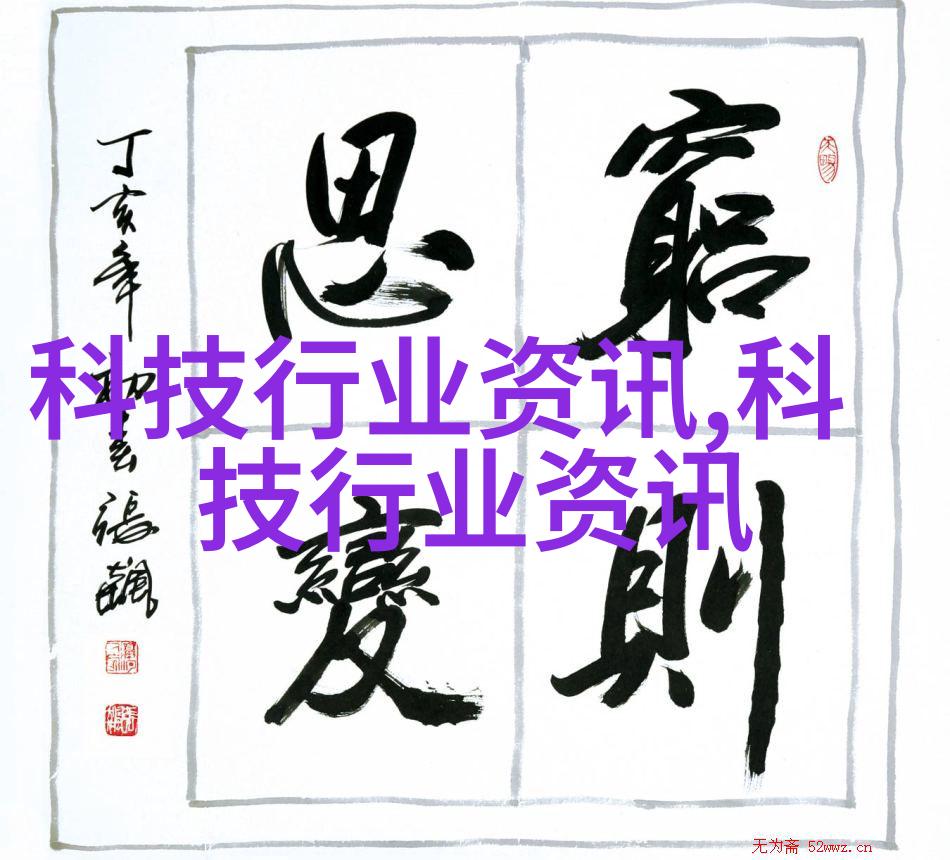 窮則
思變
丁亥年初春張飆
科技行业资讯,科
技行业资讯
无为斋 52wwz.cn